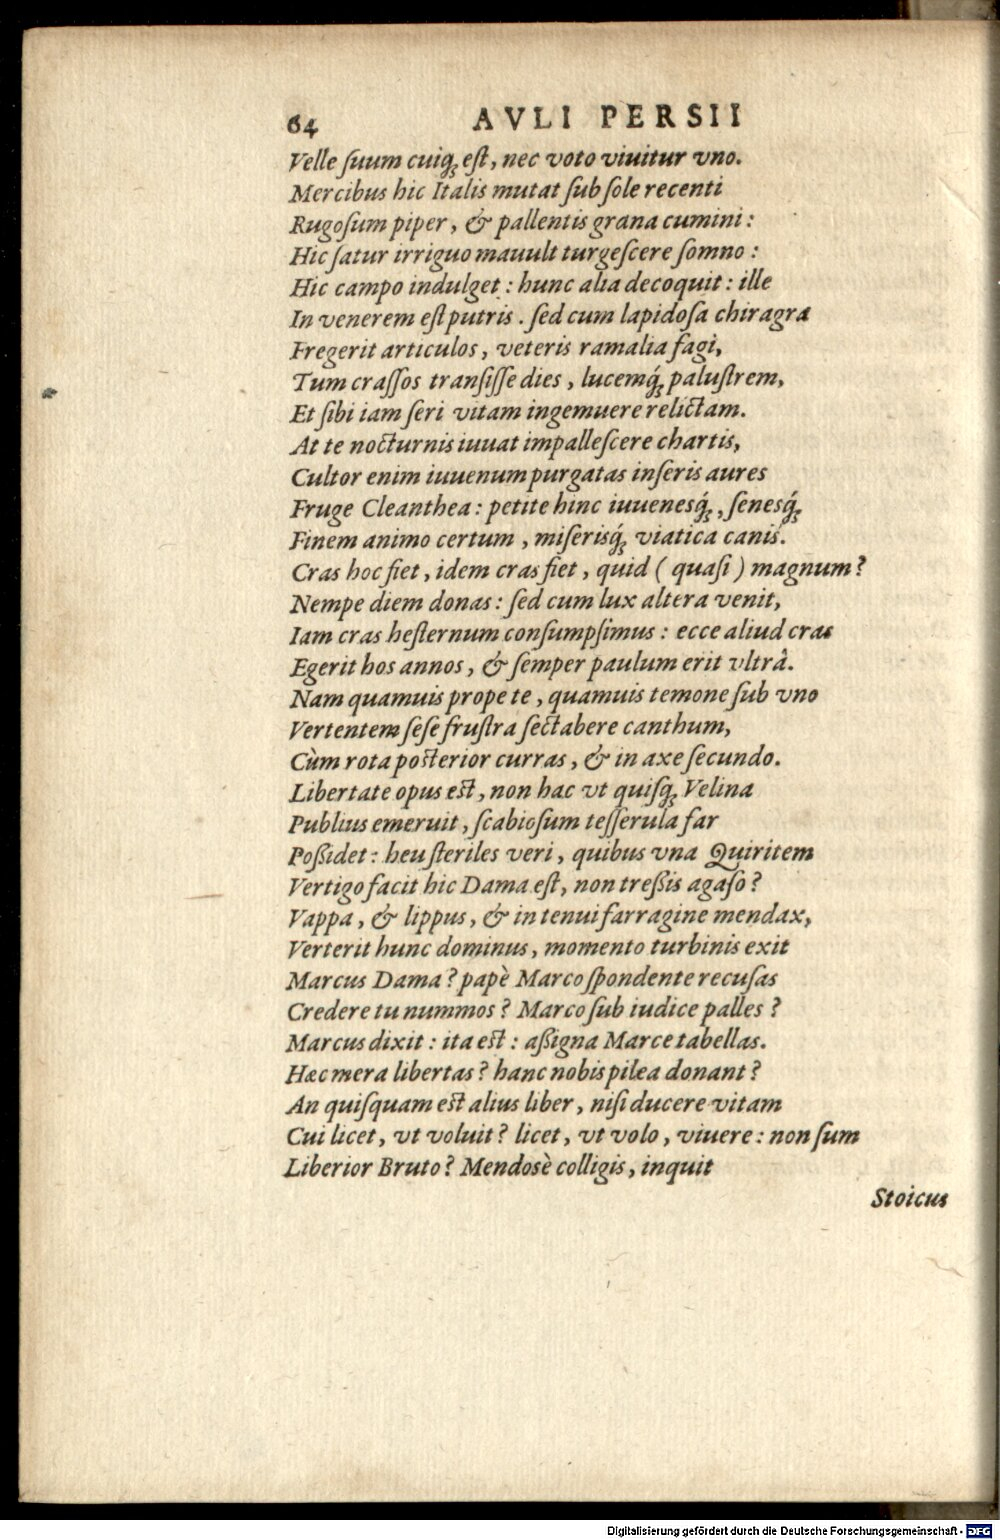 64 AVLI PERSII
Velle ſuum cuiq; eſt, nec voto viuitur vno.
Mercibus hic Italis mutat ſub ſole recenti
Rugoſum piper, & pallentis grana cumini:
Hic ſatur irriguo mauult turgeſcere ſomno:
Hic campo indulget: hunc alia decoquit: ille
In venerem eſt putris. ſed cum lapidoſa chiragra
Fregerit articulos, veteris ramalia fagi,
Tum craſſos tranſiſſe dies, lucemq́; paluſtrem,
Et ſibi iam ſeri vitam ingemuere relictam.
At te nocturnis iuuat impalleſcere chartis,
Cultor enim iuuenum purgatas inſeris aures
Fruge Cleanthea: petite hinc iuuenesq́;, ſenesq́;
Finem animo certum, miſerisq́; viatica canis.
Cras hoc fiet, idem cras fiet, quid (quaſi) magnum?
Nempe diem donas: ſed cum lux altera venit,
Iam cras heſternum conſumpſimus: ecce aliud cras
Egerit hos annos, & ſemper paulum erit vltrâ.
Nam quamuis prope te, quamuis temone ſub vno
Vertentem ſeſe fruſtra ſectabere canthum,
Cùm rota poſterior curras, & in axe ſecundo.
Libertate opus eſt, non hac vt quiſq; Velina
Publius emeruit, ſcabioſum teſſerula far
Poßidet: heu ſteriles veri, quibus vna Quiritem
Vertigo facit hic Dama eſt, non treßis agaſo?
Vappa, & lippus, & in tenui farragine mendax,
Verterit hunc dominus, momento turbinis exit
Marcus Dama? papè Marco ſpondente recuſas
Credere tu nummos? Marco ſub iudice palles?
Marcus dixit: ita eſt: aßigna Marce tabellas.
Hæc mera libertas? hanc nobis pilea donant?
An quiſquam eſt alius liber, niſi ducere vitam
Cui licet, vt voluit? licet, vt volo, viuere: non ſum
Liberior Bruto? Mendosè colligis, inquit
Stoicus
Digitalisierung gefördert durch die Deutsche Forschungsgemeinschaft - DFG